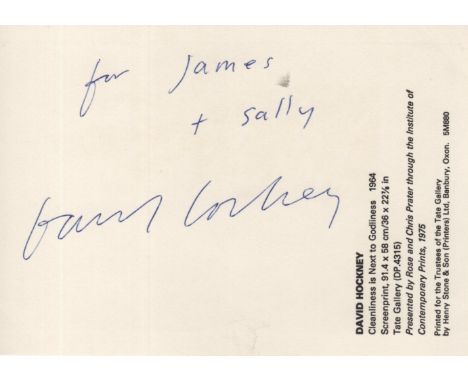 for James
+ Sally
David Hockney
DAVID HOCKNEY
Cleanliness is Next to Godliness 1964
Screenprint, 91.4 x 58 cm/36 x 22⅞ in
Tate Gallery (DP.4315)
Presented by Rose and Chris Prater through the Institute of
Contemporary Prints, 1975
Printed for the Trustees of the Tate Gallery
by Henry Stone & Son (Printers) Ltd, Banbury, Oxon. 5M880